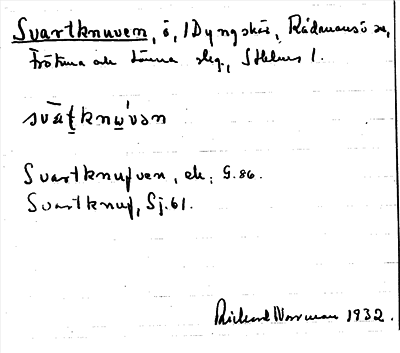 Svartknuven, ö, i Dyngskär, Rådmansö sn,
Frötuna och Länna skg., Sthlms l.
svat̠knu̠'vən
Svartknufven, ek. G.86.
Svartknuf, Sj.61.
Rickard Norrman 1932.